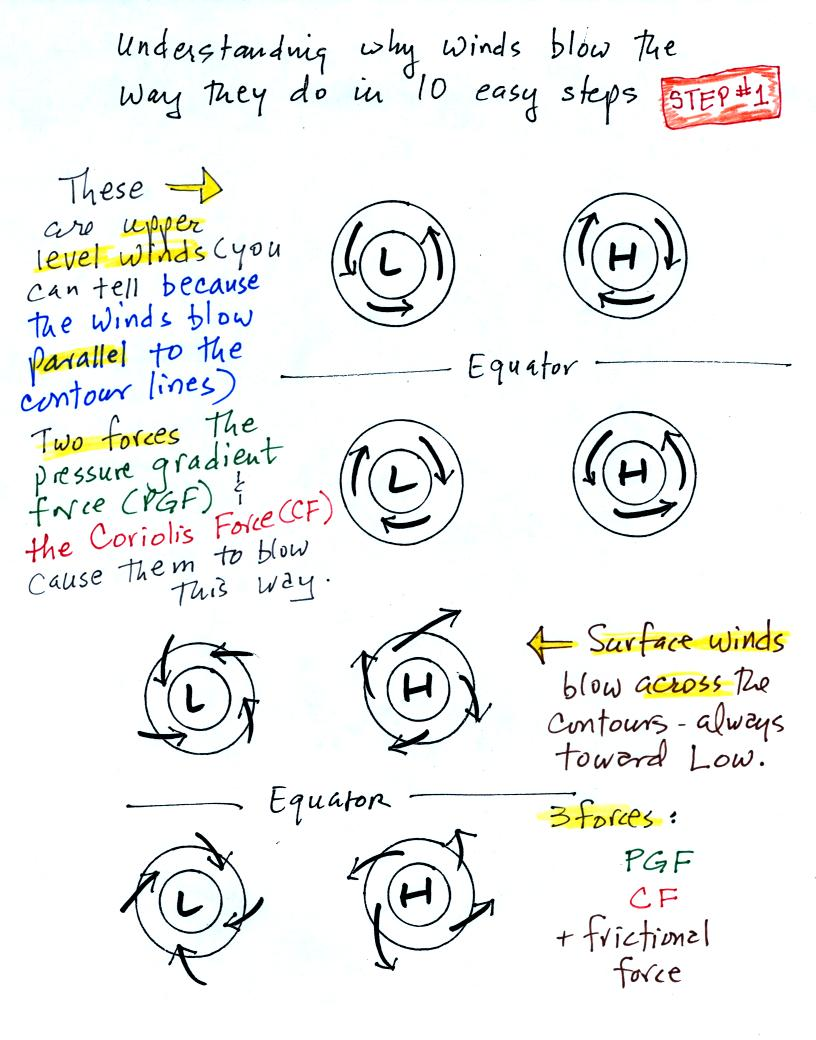 Understanding why winds blow the
way they do in 10 easy steps STEP #1
These →
are upper
level winds (you
can tell because
the winds blow
parallel to the
contour lines)
Two forces the
pressure gradient
force (PGF) &
the Coriolis Force (CF)
cause them to blow
this way.
L H
Equator
L H
L H
← Surface winds
blow across the
contours - always
toward Low.
Equator
3 forces:
PGF
CF
+ frictional
force
L H